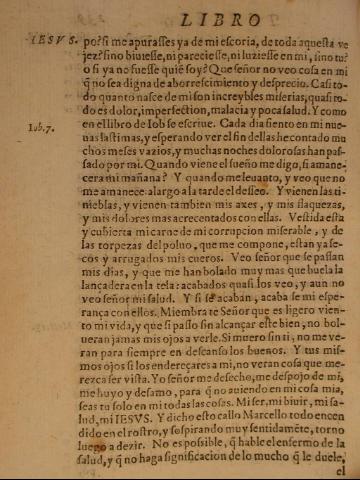 LIBRO
IESVS.
por?si me apurasses ya de mi escoria, de toda aquesta ve
jez?sino biuiesse, ni pareciesse, ni luziesse en mi, sino tu?
o si ya no fuesse quiē soy? Que señor no veo cosa en mi
q̄ no sea digna de aborrescimiento y desprecio. Casi to-
do quanto nasce de mi son increybles miserias, quasi to-
do es dolor, imperfection, malacia y poca salud. Y como
Iob.7.
en el libro de Iob se escriue. Cada dia siento en mi nue-
uas lastimas, y esperando ver el fin dellas he contado mu
chos meses vazios, y muchas noches dolorosas han pas-
sado por mi. Quando viene el sueño me digo, si amane-
cera mi mañana? Y quando me leuanto, y veo que no
me amanece alargo a la tarde el desseo. Y vienen las ti-
nieblas, y vienen tambien mis axes, y mis flaquezas,
y mis dolores mas acrecentados con ellas. Vestida esta
y cubierta mi carne de mi corrupcion miserable, y de
las torpezas del poluo, que me compone, estan ya se-
cos y arrugados mis cueros. Veo señor que se passan
mis dias, y que me han bolado muy mas que buela la
lançadera en la tela: acabados quasi los veo, y aun no
veo señor mi salud. Y si se acaban, acaba se mi espe-
rança con ellos. Miembra te Señor que es ligero vien-
to mi vida, y que si passo sin alcançar este bien, no bol-
ueran jamas mis ojos a verle. Si muero sin ti, no me ve-
ran para siempre en descanso los buenos. Y tus mis-
mos ojos si los endereçares a mi, no veran cosa que me-
rezca ser vista. Yo señor me desecho, me despojo de mi,
me huyo y desamo, para q̄ no auiendo en mi cosa mia,
seas tu solo en mi todas las cosas. Mi ser, mi biuir, mi sa-
lud, mi IESVS. Y dicho esto callo Marcello todo encen
dido en el rostro, y sospirando muy sentidamēte, torno
luego a dezir. No es possible, q̄ hable el enfermo de la
salud, y q̄ no haga significacion de lo mucho q̄ le duele,
el